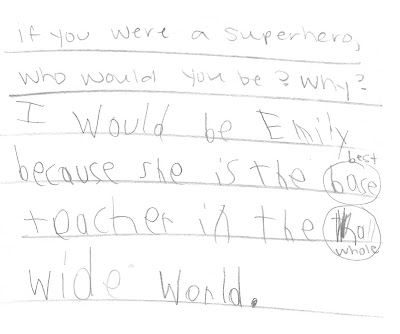 if you were a superhero,
who would you be? why?
I would be Emily
best
because she is the base
teacher in the
whole
wide world.